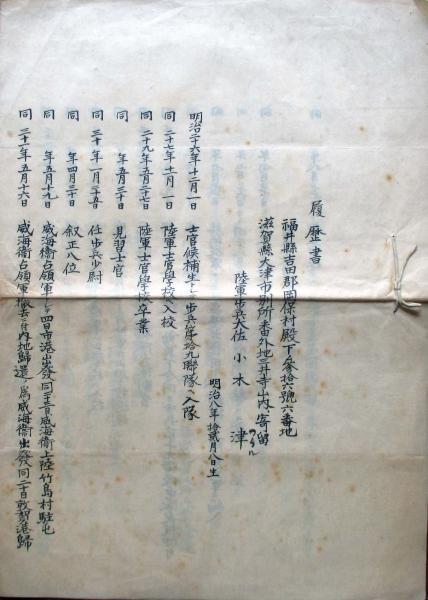 履歴書
福井縣吉田郡岡保村殿下参拾六號六番地
滋賀縣大津市別所番外地三井寺山内寄留
陸軍歩兵大佐 小木 津
ワタル
明治八年拾貳月八日生
明治二十六年十二月一日 士官候補生トシテ歩兵第拾九聯隊ヘ入隊
同 二十七年十一月一日 陸軍士官學校ヘ入校
同 二十九年五月二十七日 陸軍士官學校卒業
同 年五月三十日 見習士官
同 三十年一月二十五日 任歩兵少尉
同 年四月三十日 叙正八位
同 年五月十九日 威海衛占領軍トシテ四日市港出發同 威海衛上陸竹島村駐屯
同 三十一年五月十六日 威海衛占領軍撤去ニ付内地歸還ノ爲威海衛出發同二十日敦賀港歸